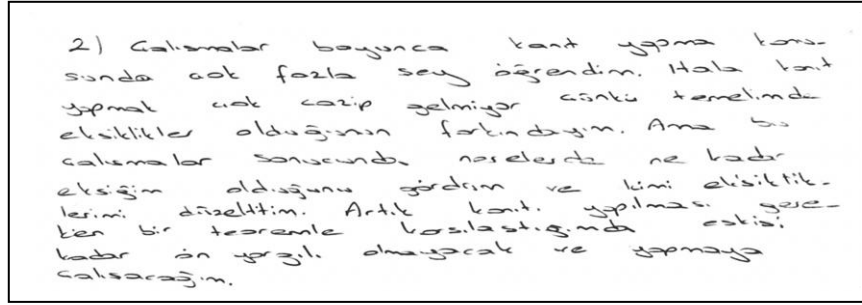 2) Çalışmalar boyunca kanıt yapma konu-
sunda çok fazla şey öğrendim. Hala kanıt
yapmak çok cazip gelmiyor çünkü temelimde
eksiklikler olduğunun farkındayım. Ama bu
çalışmalar sonucunda nerelerde ne kadar
eksiğim olduğunu gördüm ve kimi eksiklik-
lerimi düzelttim. Artık kanıt yapılması gere-
ken bir teoremle karşılaştığımda eskisi
kadar ön yargılı olmayacak ve yapmaya
çalışacağım.